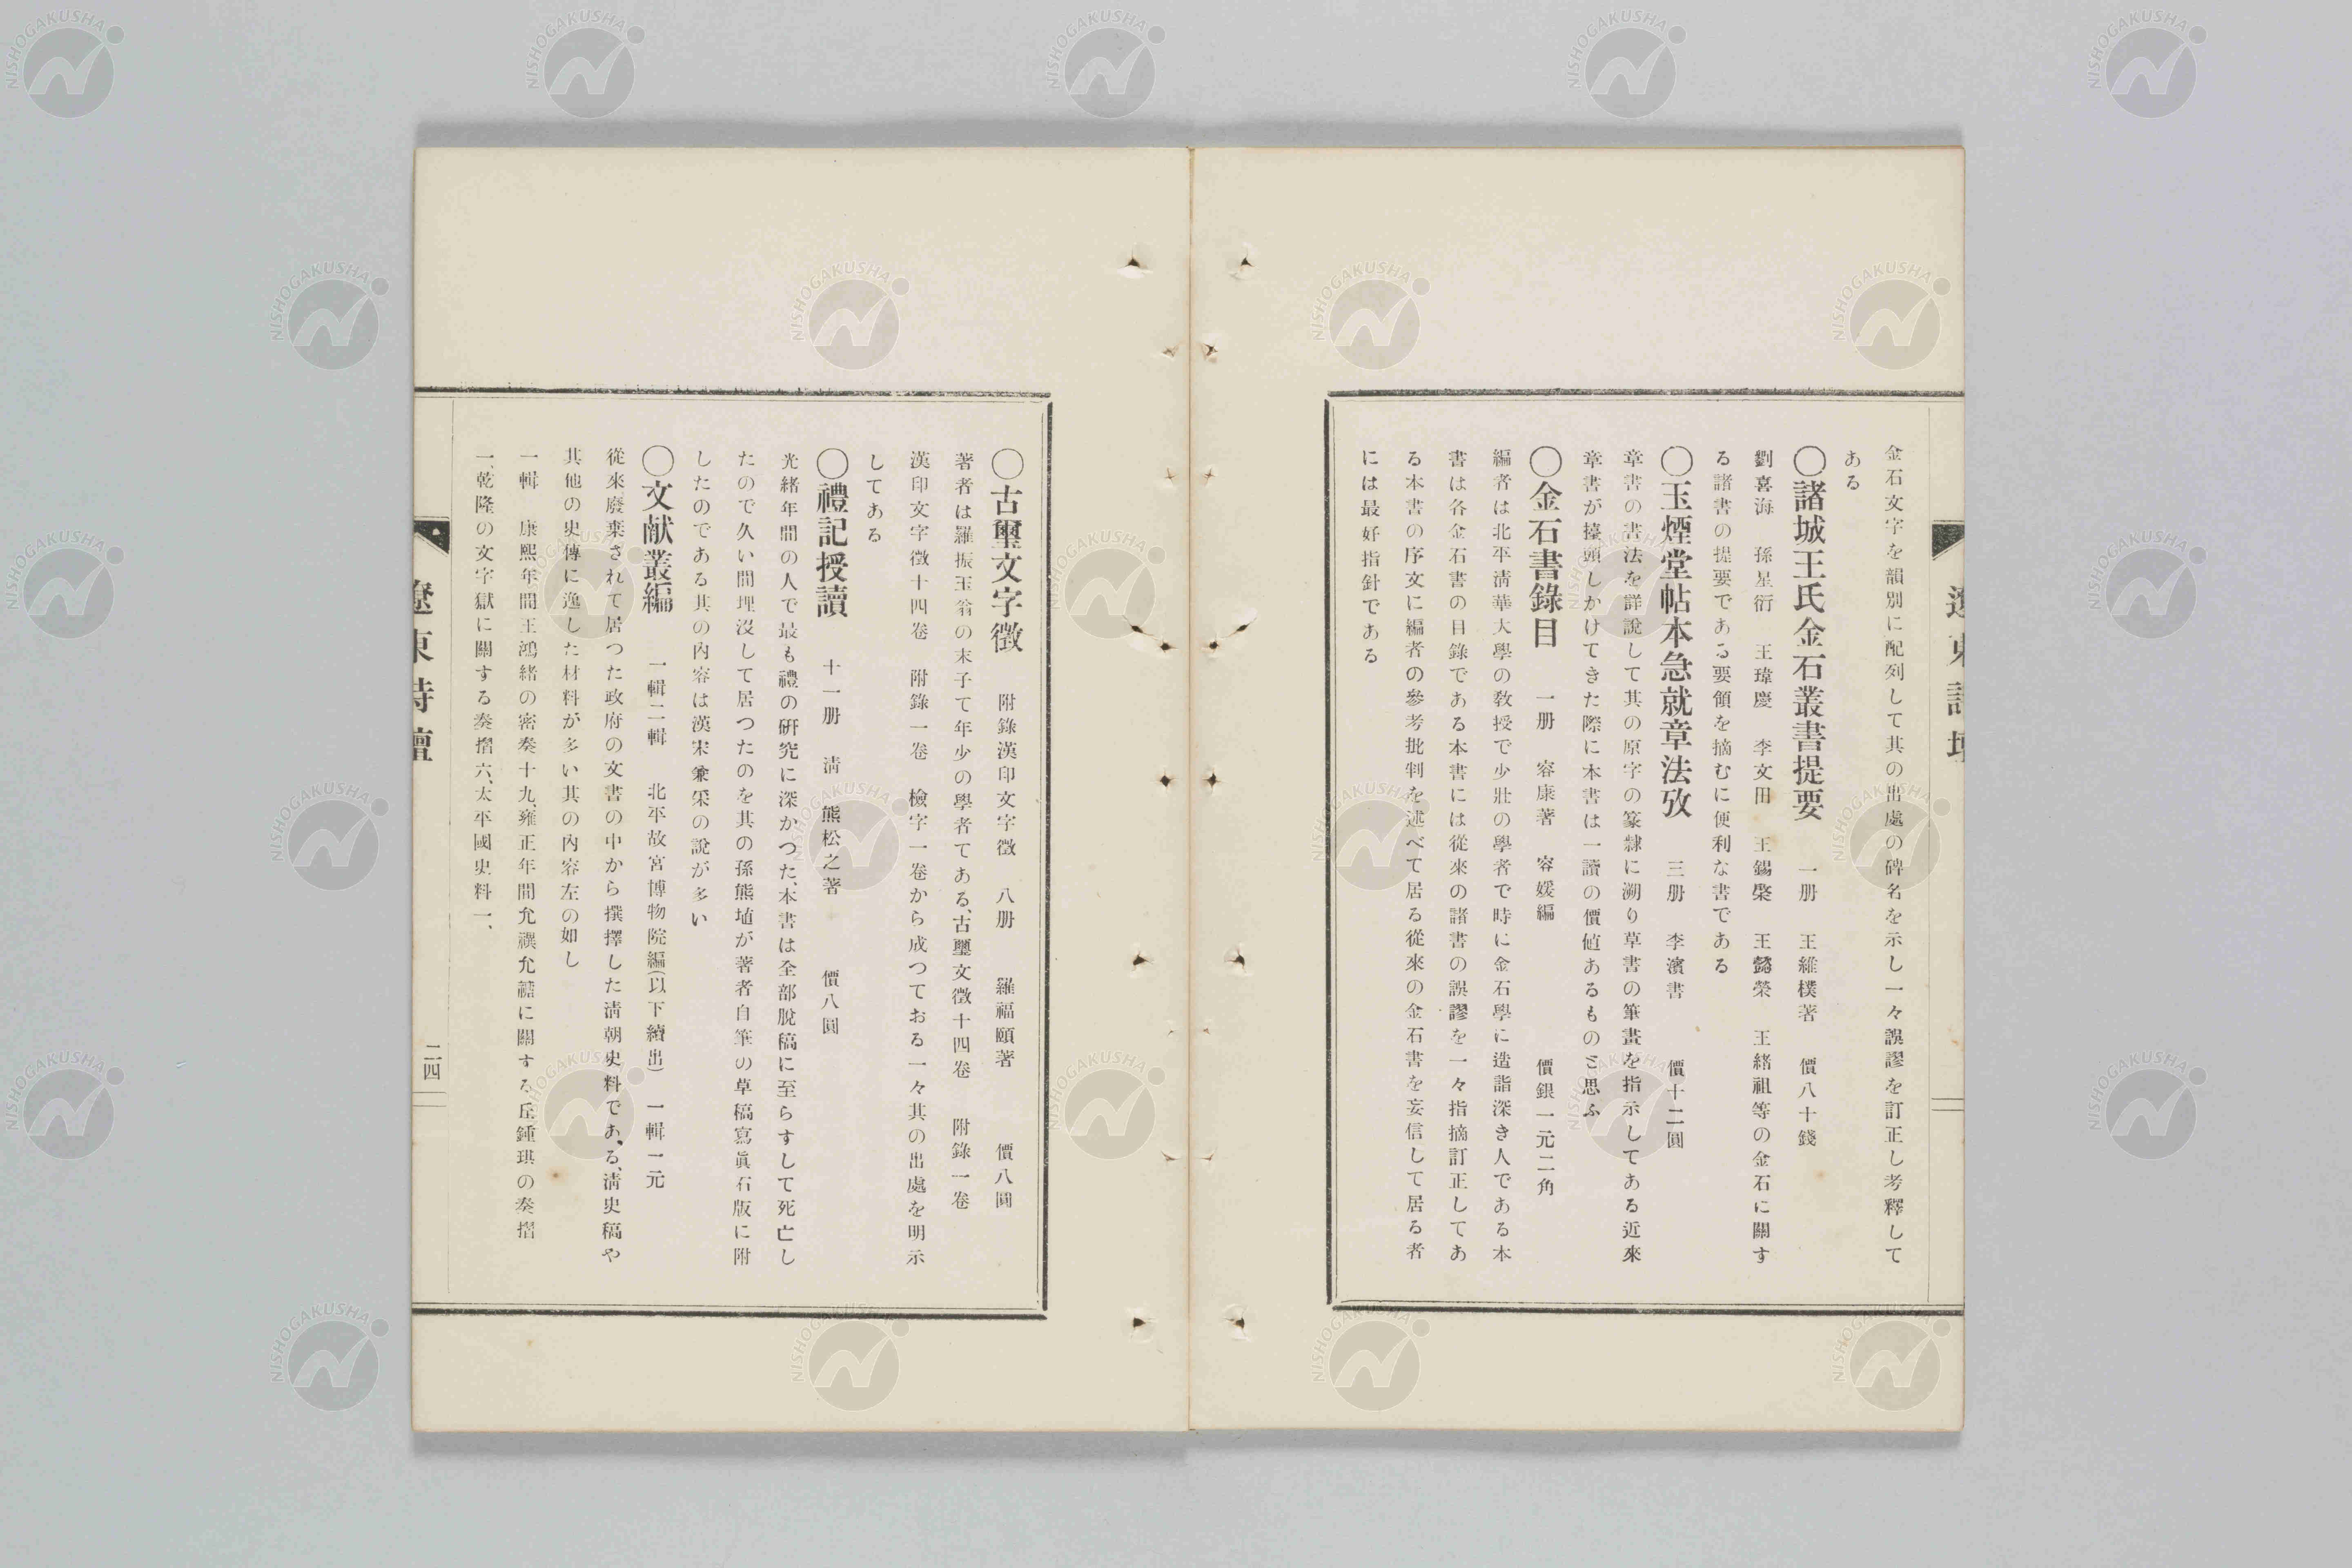 金石文字を韻別に配列して其の出處の碑名を示し一々誤謬を訂正し考釋して
ある
〇諸城王氏金石叢書提要　一册　王維樸著　價八十錢
劉喜海　孫星衍　王瑋慶　李文田　王錫棨　王懿榮　王緒祖等の金石に關す
る諸書の提要である要領を摘むに便利な書である
〇玉煙堂帖本急就章法攷　三册　李濱書　價十二圓
章書の書法を詳說して其の原字の篆隸に溯り草書の筆畫を指示してある近來
章書が擡頭しかけてきた際に本書は一讀の價値あるものと思ふ
〇金石書錄目　一册　容康著　容媛編　價銀一元二角
編者は北平淸華大學の敎授で少壯の學者で時に金石學に造詣深き人である本
書は各金石書の目錄である本書には從來の諸書の誤謬を一々指摘訂正してあ
る本書の序文に編者の參考批判を述べて居る從來の金石書を妄信して居る者
には最好指針である
〇古璽文字徵　附錄漢印文字徵　八册　羅福頤著　價八圓
著者は羅振玉翁の末子て年少の學者てある、古璽文徵十四卷　附錄一卷
漢印文字徵十四卷　附錄一卷　檢字一卷から成つておる一々其の出處を明示
してある
〇禮記授讀　十一册　淸　熊松之著　價八圓
光緒年間の人で最も禮の硏究に深かつた、本書は全部脫稿に至らすして死亡し
たので久い間埋沒して居つたのを其の孫熊埴が著者自筆の草稿寫眞石版に附
したのである其の內容は漢宋兼采の說が多い
〇文献叢編　一輯二輯　北平故宮博物院編(以下續出)　一輯一元
從來廢棄されて居つた政府の文書の中から撰擇した淸朝史料である、淸史稿や
其他の史傳に逸した材料が多い其の內容左の如し
一輯　康熙年間王鴻緒の密奏十九、雍正年間允禩允禟に關する丘鍾琪の奏摺
一、乾隆の文字獄に關する奏摺六、太平國史料一、
遼東詩壇
二四